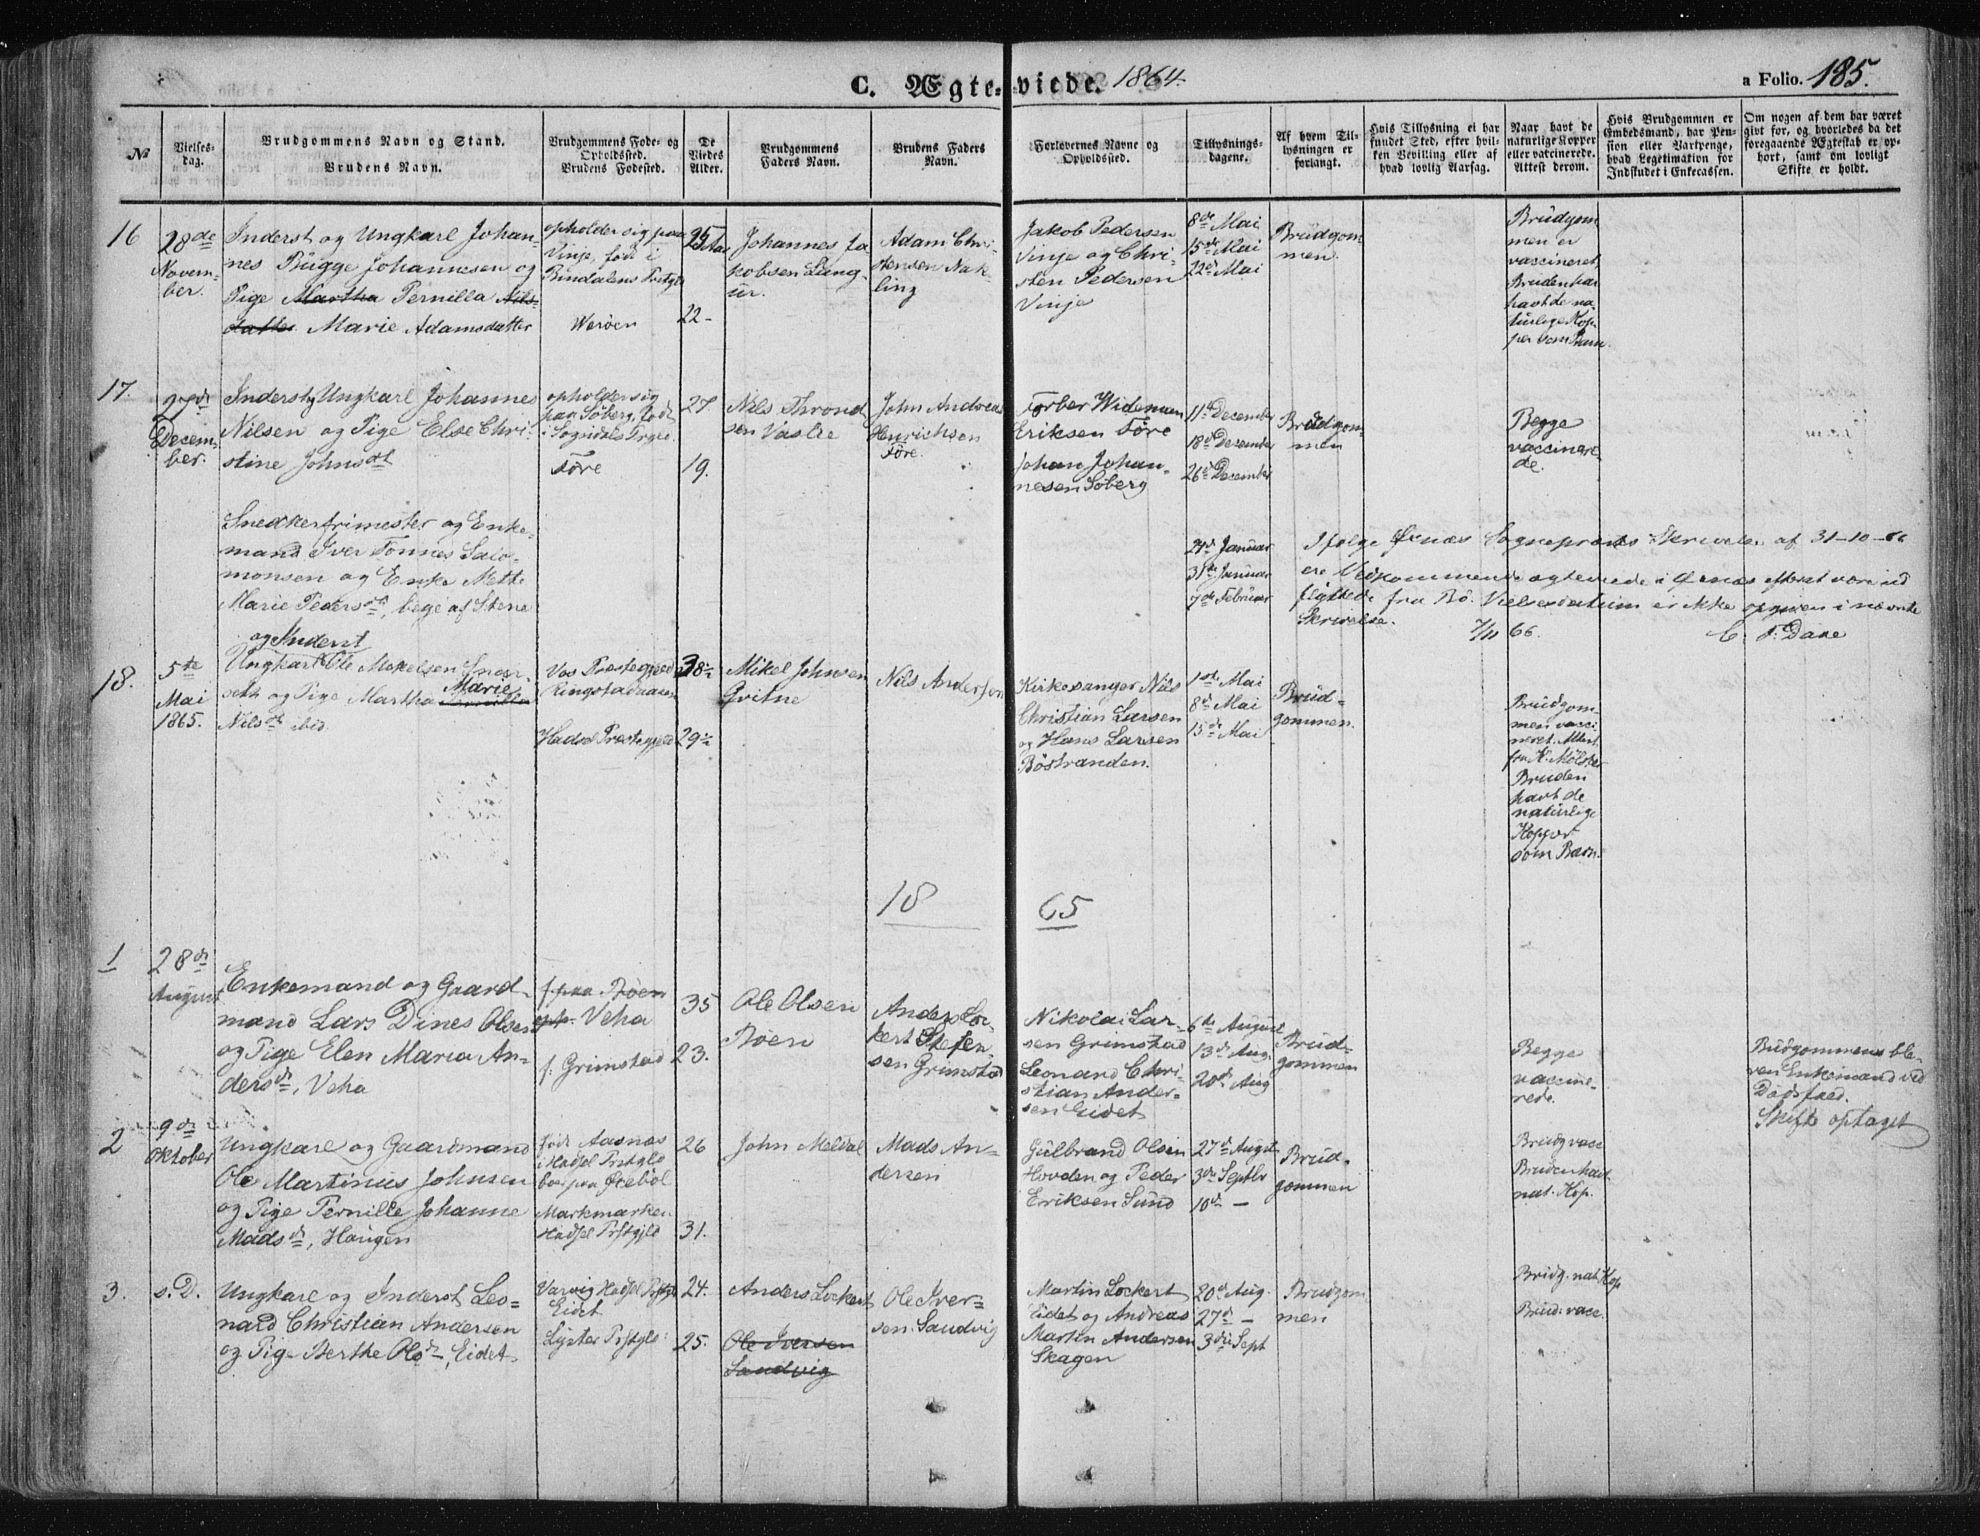 C. Ægteviede. 1864.
a Folio. 185.
№
Vielses-
dag.
Brudgommens Navn og Stand.
Brudens Navn.
Brudgommens Føde- og
Opholdssted.
Brudens Fødested.
De
Viedes
Alder.
Brudgommens
Faders Navn.
Brudens Faders
Navn.
Forlovernes Navne og
Opholdssted.
Tillysnings-
dagene.
Af hvem Til-
lysningen er
forlangt.
Hvis Tillysning ei har
fundet Sted, efter hvil-
ken Bevilling eller af
hvad lovlig Aarsag.
Naar havt de
naturlige Kopper
eller vaccinerede.
Attest derom.
Hvis Brudgommen er
Embedsmand, har Pen-
sion eller Vartpenge,
hvad Legitimation for
Indskudet i Enkecassen.
Om nogen af dem har været
givt for, og hvorledes da det
foregaaende Ægteskab er op-
hørt, samt om lovligt
Skifte er holdt.
16
28de
Novem-
ber.
Inderst og Ungkarl Johan-
nes Bugge Johannesen og
Pige Martha Pernilla Nils-
datter Marie Adamsdatter
opholder sig paa
Vinje, født i
Bindalens Prstgld
Werøen
25 Aar
22-
Johannes Ja
kobsen Lang
ur.
Adam Chri-
stensen Nak-
ling
Jakob Pedersen
Vinje og Chri-
sten Pedersen
Vinje
8de Mai
15de Mai
22de Mai
Brudgom-
men.
Brudgom
men er
vaccineret,
Bruden har
havt de na
turlige Kop-
per som Barn.
17.
27de
Decem-
ber.
Inderst og Ungkarl Johannes
Nilsen og Pige Else Chri-
stine Johnsdt
opholder sig
paa Søberg, født
i Sogndals Prgld.
Føre
27
19.
Nils Thrond
sen
John Andreas
Henrichsen
Føre.
Torber Widemen
Eriksen Føre
Johan Johan-
nesen Søberg
11te December
18de December
26de December
Brudgom-
men
Begge
vaccinere
de.
Snedkerfrimester og Enke-
mand Iver Tønnes Salo-
monsen og Enke Mette
Marie Pedersdt, bege af Stene
24de Januar
31te Januar
7de Februar
Ifølge Øxnæs Sognepræsts Skrivelse af 31-10-66
ere Vedkommende ægteviede i Øxnæs efterat være ud
flyttede fra Bø. Vielsesdatum er ikke opgiven i nævnte
Skrivelse. 7/11 66. C. F. Daae
18.
5te
Mai
1865.
og Inderst
Ungkarl Ole Mekelsen
sett og Pige Martha Marie Pernilla
Nilsdt ibid
Vos Præstegjeld
Ringstadaasen
Hadsel Præstegjeld
38½
29½
Mikel Johnsen
Gvitne
Nils Andersen
Kirkesanger Nils
Christian Larsen
og Hans Larsen
Bøstranden.
1ste Mai
8de Mai
15de Mai
Brud-
gommen.
Brudgom-
men vacci
neret. Attest
fra K. Mølster
Bruden
havt de
naturlige
Kopper
som Barn.
18 65
1
28de
August
Enkemand og Gaard-
mand Lars Dines Olsen
og Pige Elen Maria An-
dersdt, Veha
f. paa Bøen
oph. Veha
f. Grimstad
35
23.
Ole Olsen
Bøen
Anders Lo-
kert Stefen-
sen Grimstad
Nikolai Lar-
sen Grimstad
Leonard Chri-
stian Ander-
sen Eidet
6te August
13de Aug.
20de Aug
Brud-
gommen
Begge
vaccine-
rede.
Budgommens ble-
ven Enkemand ved
Dødsfald.
Skifte optaget
2
9de
Oktober
Ungkarl og Gaardmand
Ole Martinus Johnsen
og Pige Pernille Johanne
Madsdt, Haugen
født Aasnæs
i Hadsel Prstgld
boer paa Øxebøl
Markmarken
Hadsel Prstgjld
26
31.
John Meldal
Mads An-
dersen
Gulbrand Olsen
Hovden og Peder
Eriksen Sund
27de August
3die Septbr
10de -
Brud-
gommen
Brudg vacc
Bruden havt
nat. Kop.
3.
s. D.
Ungkarl og Inderst Leo-
nard Christian Andersen
og Pige Berthe Olsdt, Eidet
Varvig Hadsel Prstgd
Eidet
Lyster Prstgld
24.
25.
Anders Lockert
Ole Iversen
Sandvig
Ole Iver-
sen Sandvig
Martin Lockert
Eidet og Andreas
Martin Andersen
Skagen
20de Aug.
27de -
3die Sept
Brudgom
men
Brudg. nat Kop
Brud. vacc.